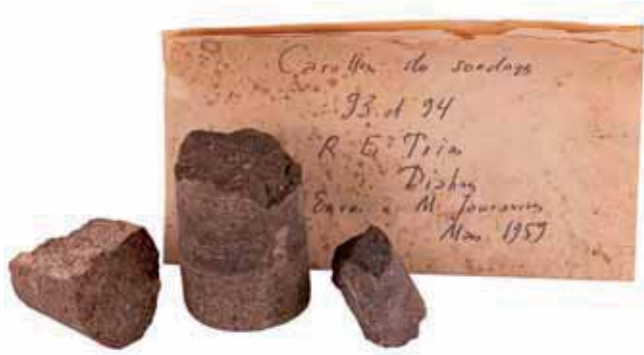 Carottes de sondage
93 et 94
R E
Diabas
Envoi M. Jouravsky
Mars 1959